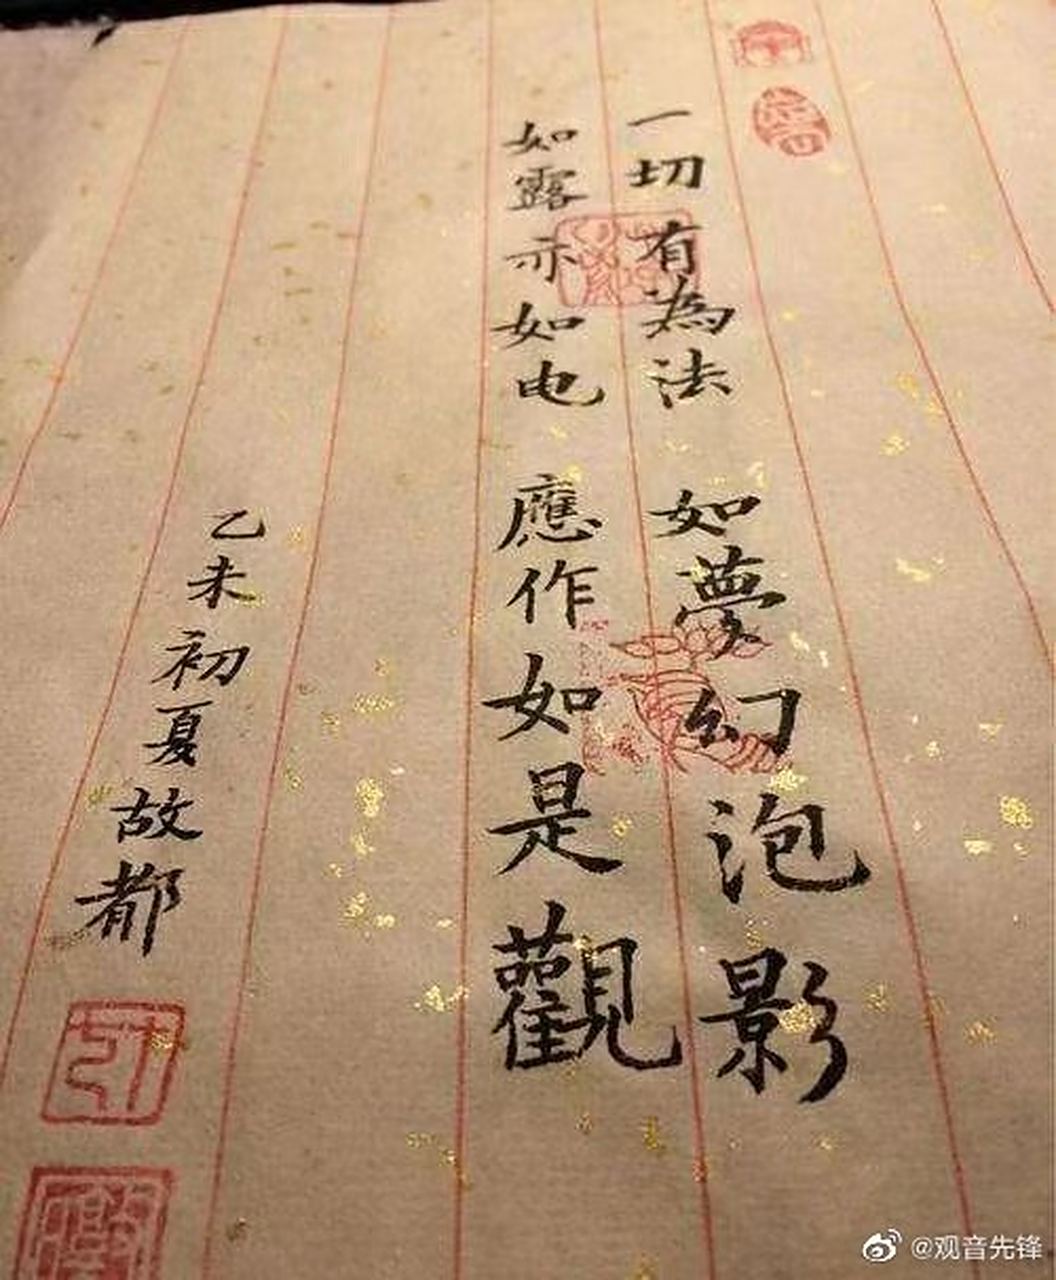 一切有為法 如夢幻泡影
如露亦如电 應作如是觀
乙未初夏故都
@观音先锋